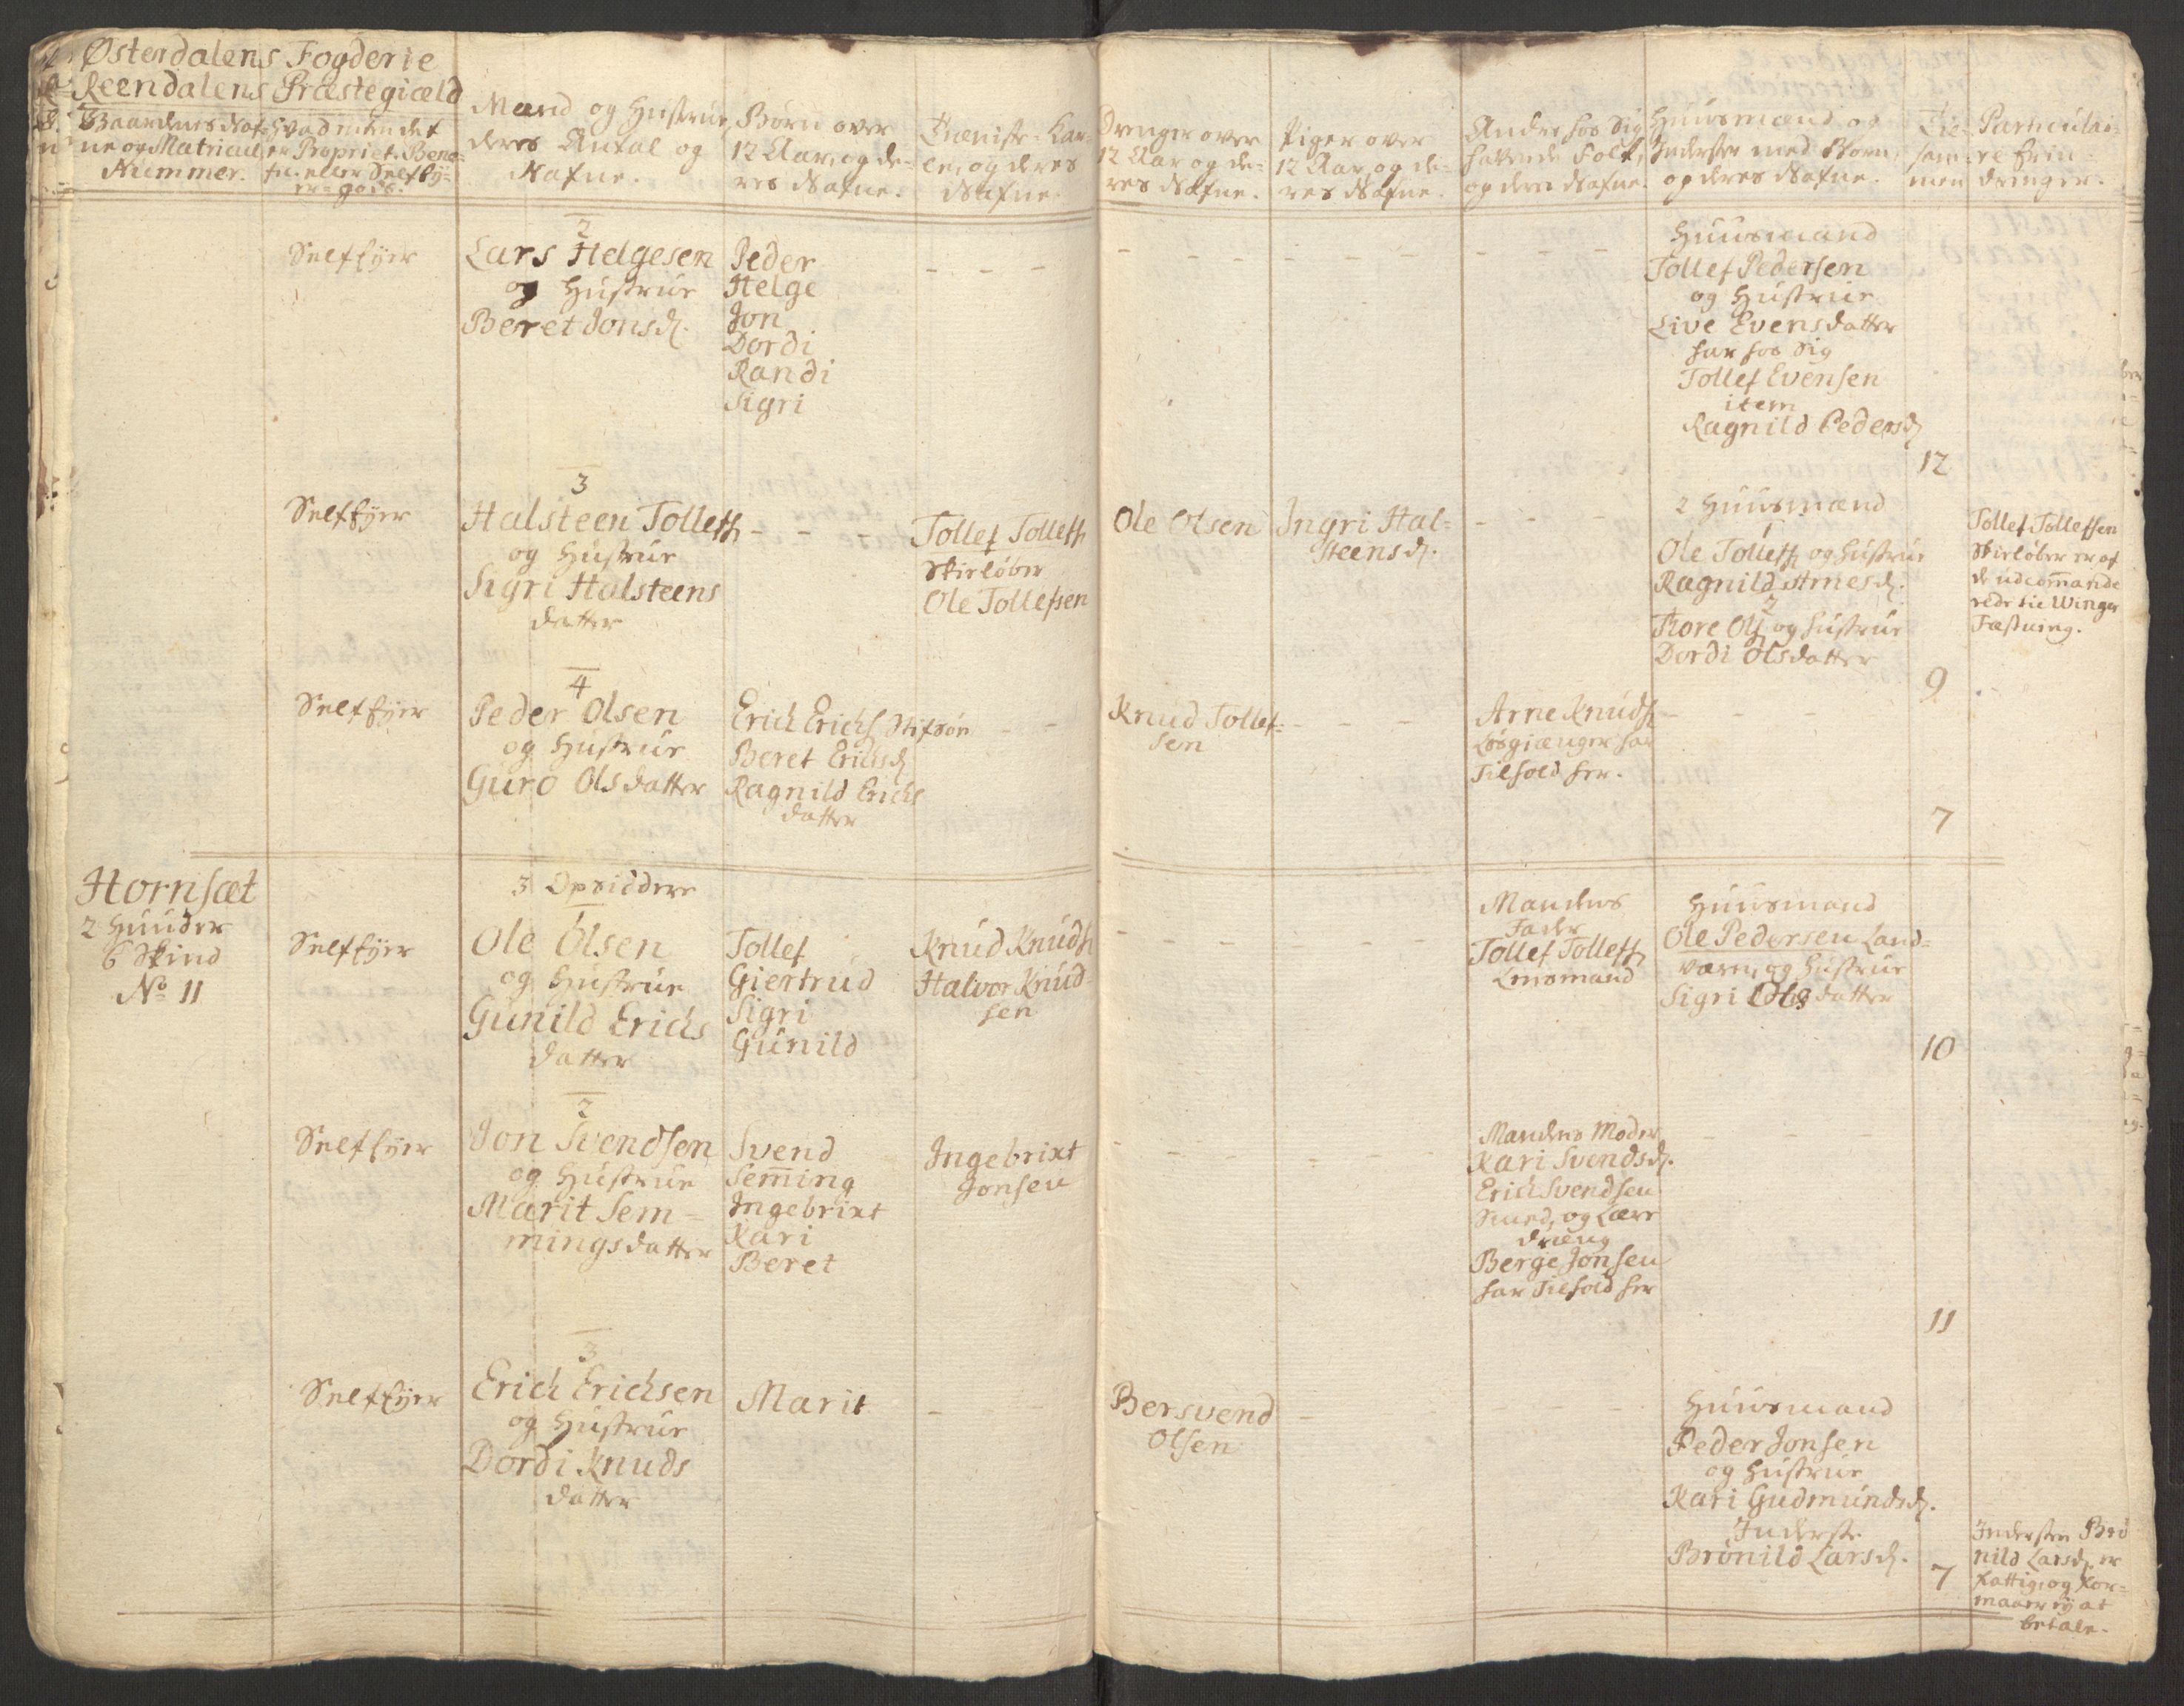 Østerdalens Fogderie
Reendalens Præstegiæld
Gaardenes Naf-
ne og Matricul
Nummer.
Hvad men det
er Propriet. Bene-
fic. eller Selfey-
er-gods.
Mænd og Hustruer
deres Antal og
Nafne.
Børn over
12 Aar, og de-
res Nafne.
Tieniste-Kar-
le, og deres
Nafne.
Drenger over
12 Aar og de-
res Nafne.
Piger over
12 Aar, og de-
res Nafne.
Andre hos Sig
hafvende Folk,
og deres Nafne.
Huusmænd og
Inderster med Børn,
og deres Nafne.
Til-
sam-
men
Particulai-
re Erin-
dringer.
Selfeyer
2
Lars Helgesen
og Hustrue
Beret Jonsd.
Peder
Helge
Jon
Dordi
Randi
Sigri
- - -
- - - -
- - - -
- - -
Huusmand
Tollef Pedersen
og Hustrue
Live Evensdatter
har hos Sig
Tollef Evensen
item
Ragnild Pedersd.
12
Selfeyer
3
Halsteen Tollefs.
og Hustrue
Sigri Halsteens
datter
- - -
Tollef Tollefs.
Skieløber
Ole Tollefsen
Ole Olsen
Ingri Hal-
steensd.
- - -
2 Huusmænd
1
Ole Tollefs. og Hustrue
Ragnild Arnesd.
2
Tore Ols. og Hustrue
Dordi Olsdatter
9
Tollef Tollefsen
Skieløber er af
de udcom̄ande
rede til Winger
Fæstning.
Selfeyer
4
Peder Olsen
og Hustrue
Guro Olsdatter
Erich Erichs. Stifsøn
Beret Erichsd.
Ragnild Erichs
datter
- -
Knud Tollef-
sen
- - -
Arne Knuds.
Løsgiænger har
Tilhold her.
- - -
7
Hornsæt
2 Huuder
6 Skind
No 11
3 Opsiddere
Selfeyer
1
Ole Olsen
og Hustrue
Gunild Erichs
datter
Tollef
Giertrud
Sigri
Gunild
Knud Knuds.
Halvor Knud-
sen
- - - -
- - -
Mandens
Fader
Tollef Tollefs.
Lensmand
Huusmand
Ole Pedersen Land-
værn, og Hustrue
Sigri Olsdatter
10
Selfeyer
2
Jon Svendsen
og Hustrue
Marit Sem-
mingsdatter
Svend
Sem̄ing
Ingebrixt
Kari
Beret
Ingebrixt
Jonsen
- - -
- - -
Mandens Moder
Kari Svendsd.
Erich Svendsen
Smed, og Lære
dræng
Berge Jonsen
har Tilhold her
- - -
11
Selfeyer
3
Erich Erichsen
og Hustrue
Dordi Knuds
datter
Marit
- -
Bersvend
Olsen
- - -
- - -
Huusmand
Peder Jonsen
og Hustrue
Kari Gudmundsd.
Inderste
Brønild Larsd.
7
Indersten Brø
nild Larsd. er
fattig, og for-
maaer ey at
betale.